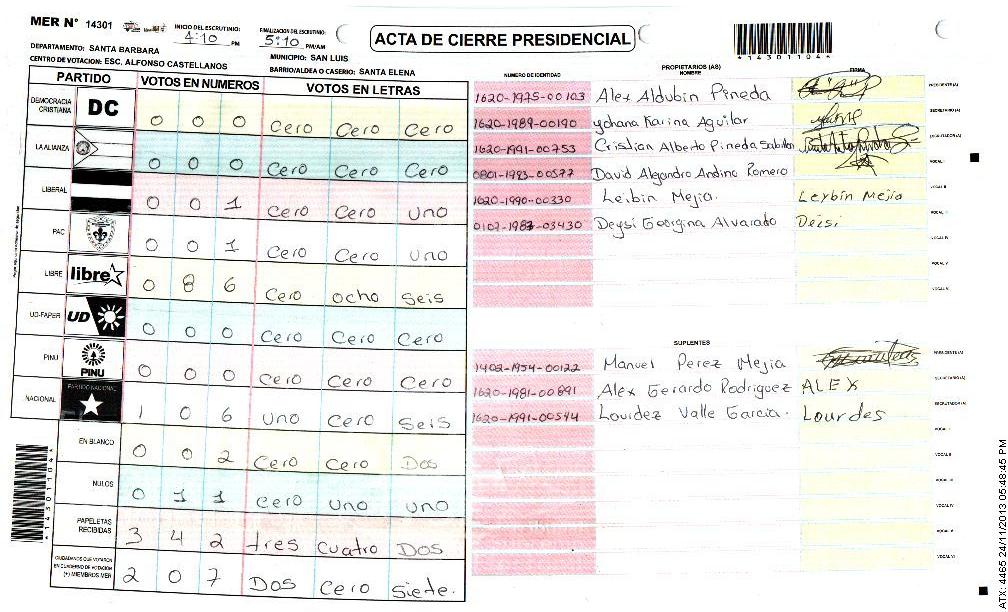 MER N° 14301
INICIO DEL ESCRUTINIO: 4:10 PM
FINALIZACION DEL ESCRUTINIO: 5:10 PM/AM
ACTA DE CIERRE PRESIDENCIAL
*14301104*
DEPARTAMENTO: SANTA BARBARA
MUNICIPIO: SAN LUIS
CENTRO DE VOTACION: ESC. ALFONSO CASTELLANOS
BARRIO/ALDEA O CASERIO: SANTA ELENA
PARTIDO VOTOS EN NUMEROS VOTOS EN LETRAS
DEMOCRACIA CRISTIANA DC 0 0 0 Cero Cero Cero
LA ALIANZA 0 0 0 Cero Cero Cero
LIBERAL 0 0 1 Cero Cero Uno
PAC 0 0 1 Cero Cero Uno
LIBRE libre 0 8 6 Cero ocho Seis
UD-FAPER UD 0 0 0 Cero Cero Cero
PINU PINU 0 0 0 Cero Cero Cero
NACIONAL PARTIDO NACIONAL 1 0 6 Uno Cero Seis
EN BLANCO 0 0 2 Cero Cero Dos
NULOS 0 1 1 Cero Uno Uno
PAPELETAS RECIBIDAS 3 4 2 tres Cuatro Dos
CIUDADANOS QUE VOTARON EN CUADERNO DE VOTACION (+) MIEMBROS MER 2 0 7 Dos Cero Siete.
*14301104*
PROPIETARIOS (AS)
NUMERO DE IDENTIDAD NOMBRE FIRMA
1620-1975-00103 Alex Aldubin Pineda PRESIDENTE(A)
1620-1989-00190 yohana Karina Aguilar SECRETARIO(A)
1620-1991-00753 Cristian Alberto Pineda Sabillon ESCRUTADOR(A)
0801-1983-00577 David Alejandro Andino Romero VOCAL I
1620-1990-00330 Leibin Mejia. Leybin Mejia VOCAL II
0107-1987-03430 Deysi Georgina Alvarado Deisi VOCAL III
VOCAL IV
VOCAL V
VOCAL VI
SUPLENTES
1402-1954-00122 Manuel Perez Mejia PRESIDENTE(A)
1620-1981-00891 Alex Gerardo Rodriguez ALEX SECRETARIO(A)
1620-1991-00544 Lourdez Valle Garcia. Lourdes ESCRUTADOR(A)
VOCAL I
VOCAL II
VOCAL III
VOCAL IV
VOCAL V
VOCAL VI
ATX: 4465 24/11/2013 05:48:45 PM